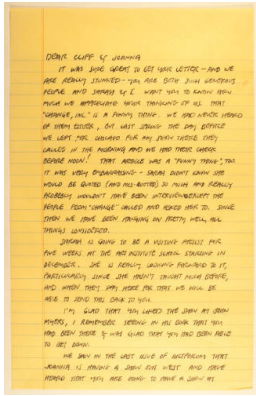 DEAR CLIFF & JOANNA
IT WAS SURE GREAT TO GET YOUR LETTER – AND WE
ARE REALLY STUNNED – YOU ARE BOTH SUCH GENEROUS
PEOPLE AND SARAH & I WANT YOU TO KNOW HOW
MUCH WE APPRECIATE YOUR THINKING OF US. THAT
"CHANGE, INC." IS A FUNNY THING. WE HAD NEVER HEARD
OF THEM EITHER, BUT LAST SPRING THE DAY BEFORE
WE LEFT FOR CHICAGO FOR MY SHOW THERE THEY
CALLED IN THE MORNING AND WE HAD THEIR CHECK
BEFORE NOON! THAT ARTICLE WAS A "FUNNY THING", TOO
IT WAS VERY EMBARRASSING – SARAH DIDN'T KNOW SHE
WOULD BE QUOTED (AND MIS-QUOTED) SO MUCH AND REALLY
PROBABLY WOULDN'T HAVE BEEN INTERVIEWED EXCEPT THE
PEOPLE FROM "CHANGE" CALLED AND ASKED HER TO. SINCE
THEN WE HAVE BEEN HANGING ON PRETTY WELL, ALL
THINGS CONSIDERED.
SARAH IS GOING TO BE A VISITING ARTIST FOR
FIVE WEEKS AT THE ART INSTITUTE SCHOOL STARTING IN
DECEMBER. SHE IS REALLY LOOKING FORWARD TO IT,
PARTICULARLY SINCE SHE HASN'T TAUGHT MUCH BEFORE,
AND WHEN THEY PAY HER FOR THAT WE WILL BE
ABLE TO SEND THIS BACK TO YOU.
I'M GLAD THAT YOU LIKED THE SHOW AT JOHN
MYERS, I REMEMBER SEEING IN HIS BOOK THAT YOU
HAD BEEN THERE & WAS GLAD THAT YOU HAD BEEN ABLE
TO GET DOWN.
WE SAW IN THE LAST ISSUE OF ARTFORUM THAT
JOANNA IS HAVING A SHOW OUT WEST AND HAVE
HEARD THAT YOU ARE GOING TO HAVE A SHOW AT